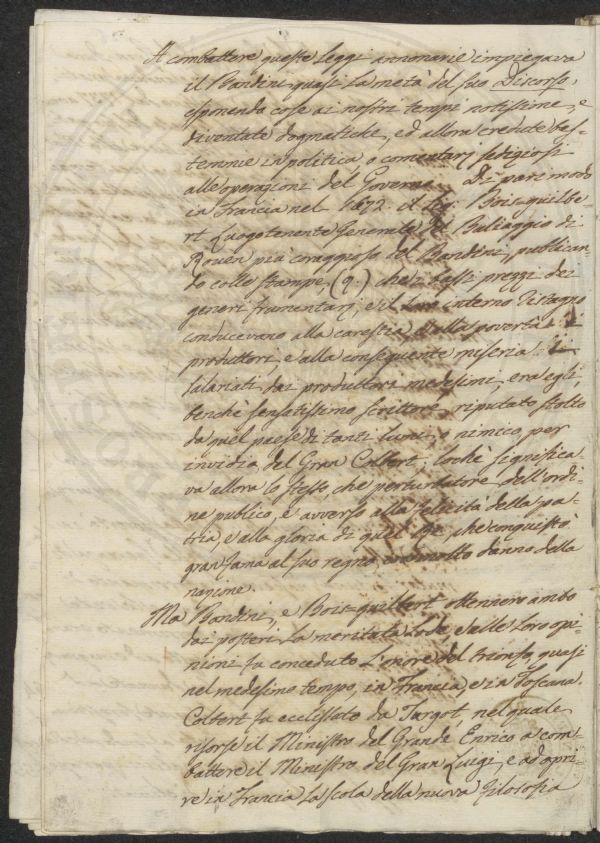 A combattere queste Leggi annonarie impiegava
il Bandini quasi la metà del suo Discorso,
esponendo cose ai nostri tempi notissime, e
diventate dogmatiche, ed allora credute bes-
temmie in politica, o comentarj sediziosi
alle operazioni del Governo. Di pari modo
in Francia nel 1672. il Sig. Bois-guilbe-
rt Luogotenente Generale del Baliaggio di
Roven più coraggioso del Bandini, publican
do colle stampe, (9.) che i bassi prezzi dei
generi frumentarj, e il loro interno ristagno
conducevano alla carestia, e alla povertà i
produttori, e alla conseguente miseria i
salariati dai produttori medesimi, era egli,
benchè sensatissimo scrittore, riputato stolto
da quel paese di tanti lumi, o nimico, per
invidia, del Gran Colbert, lochè significa-
va allora lo stesso, che perturbatore dell'ordi-
ne publico, e avverso alla felicità della pa-
tria, e alla gloria di quel Rè, che conquistò
gran fama al suo regno, con molto danno della
nazione.
Ma Bandini, e Bois-guilbert ottennero ambo
dai posteri la meritata lode, e alle loro opi-
nioni fu conceduto l'onore del trionfo, quasi
nel medesimo tempo, in Francia, e in Toscana.
Colbert fu ecclissato da Turgot, nel quale
risorse il Ministro del Grande Enrico a com-
battere il Ministro del Gran Luigi, e ad opri-
re in Francia la scola della nuova Filosofia